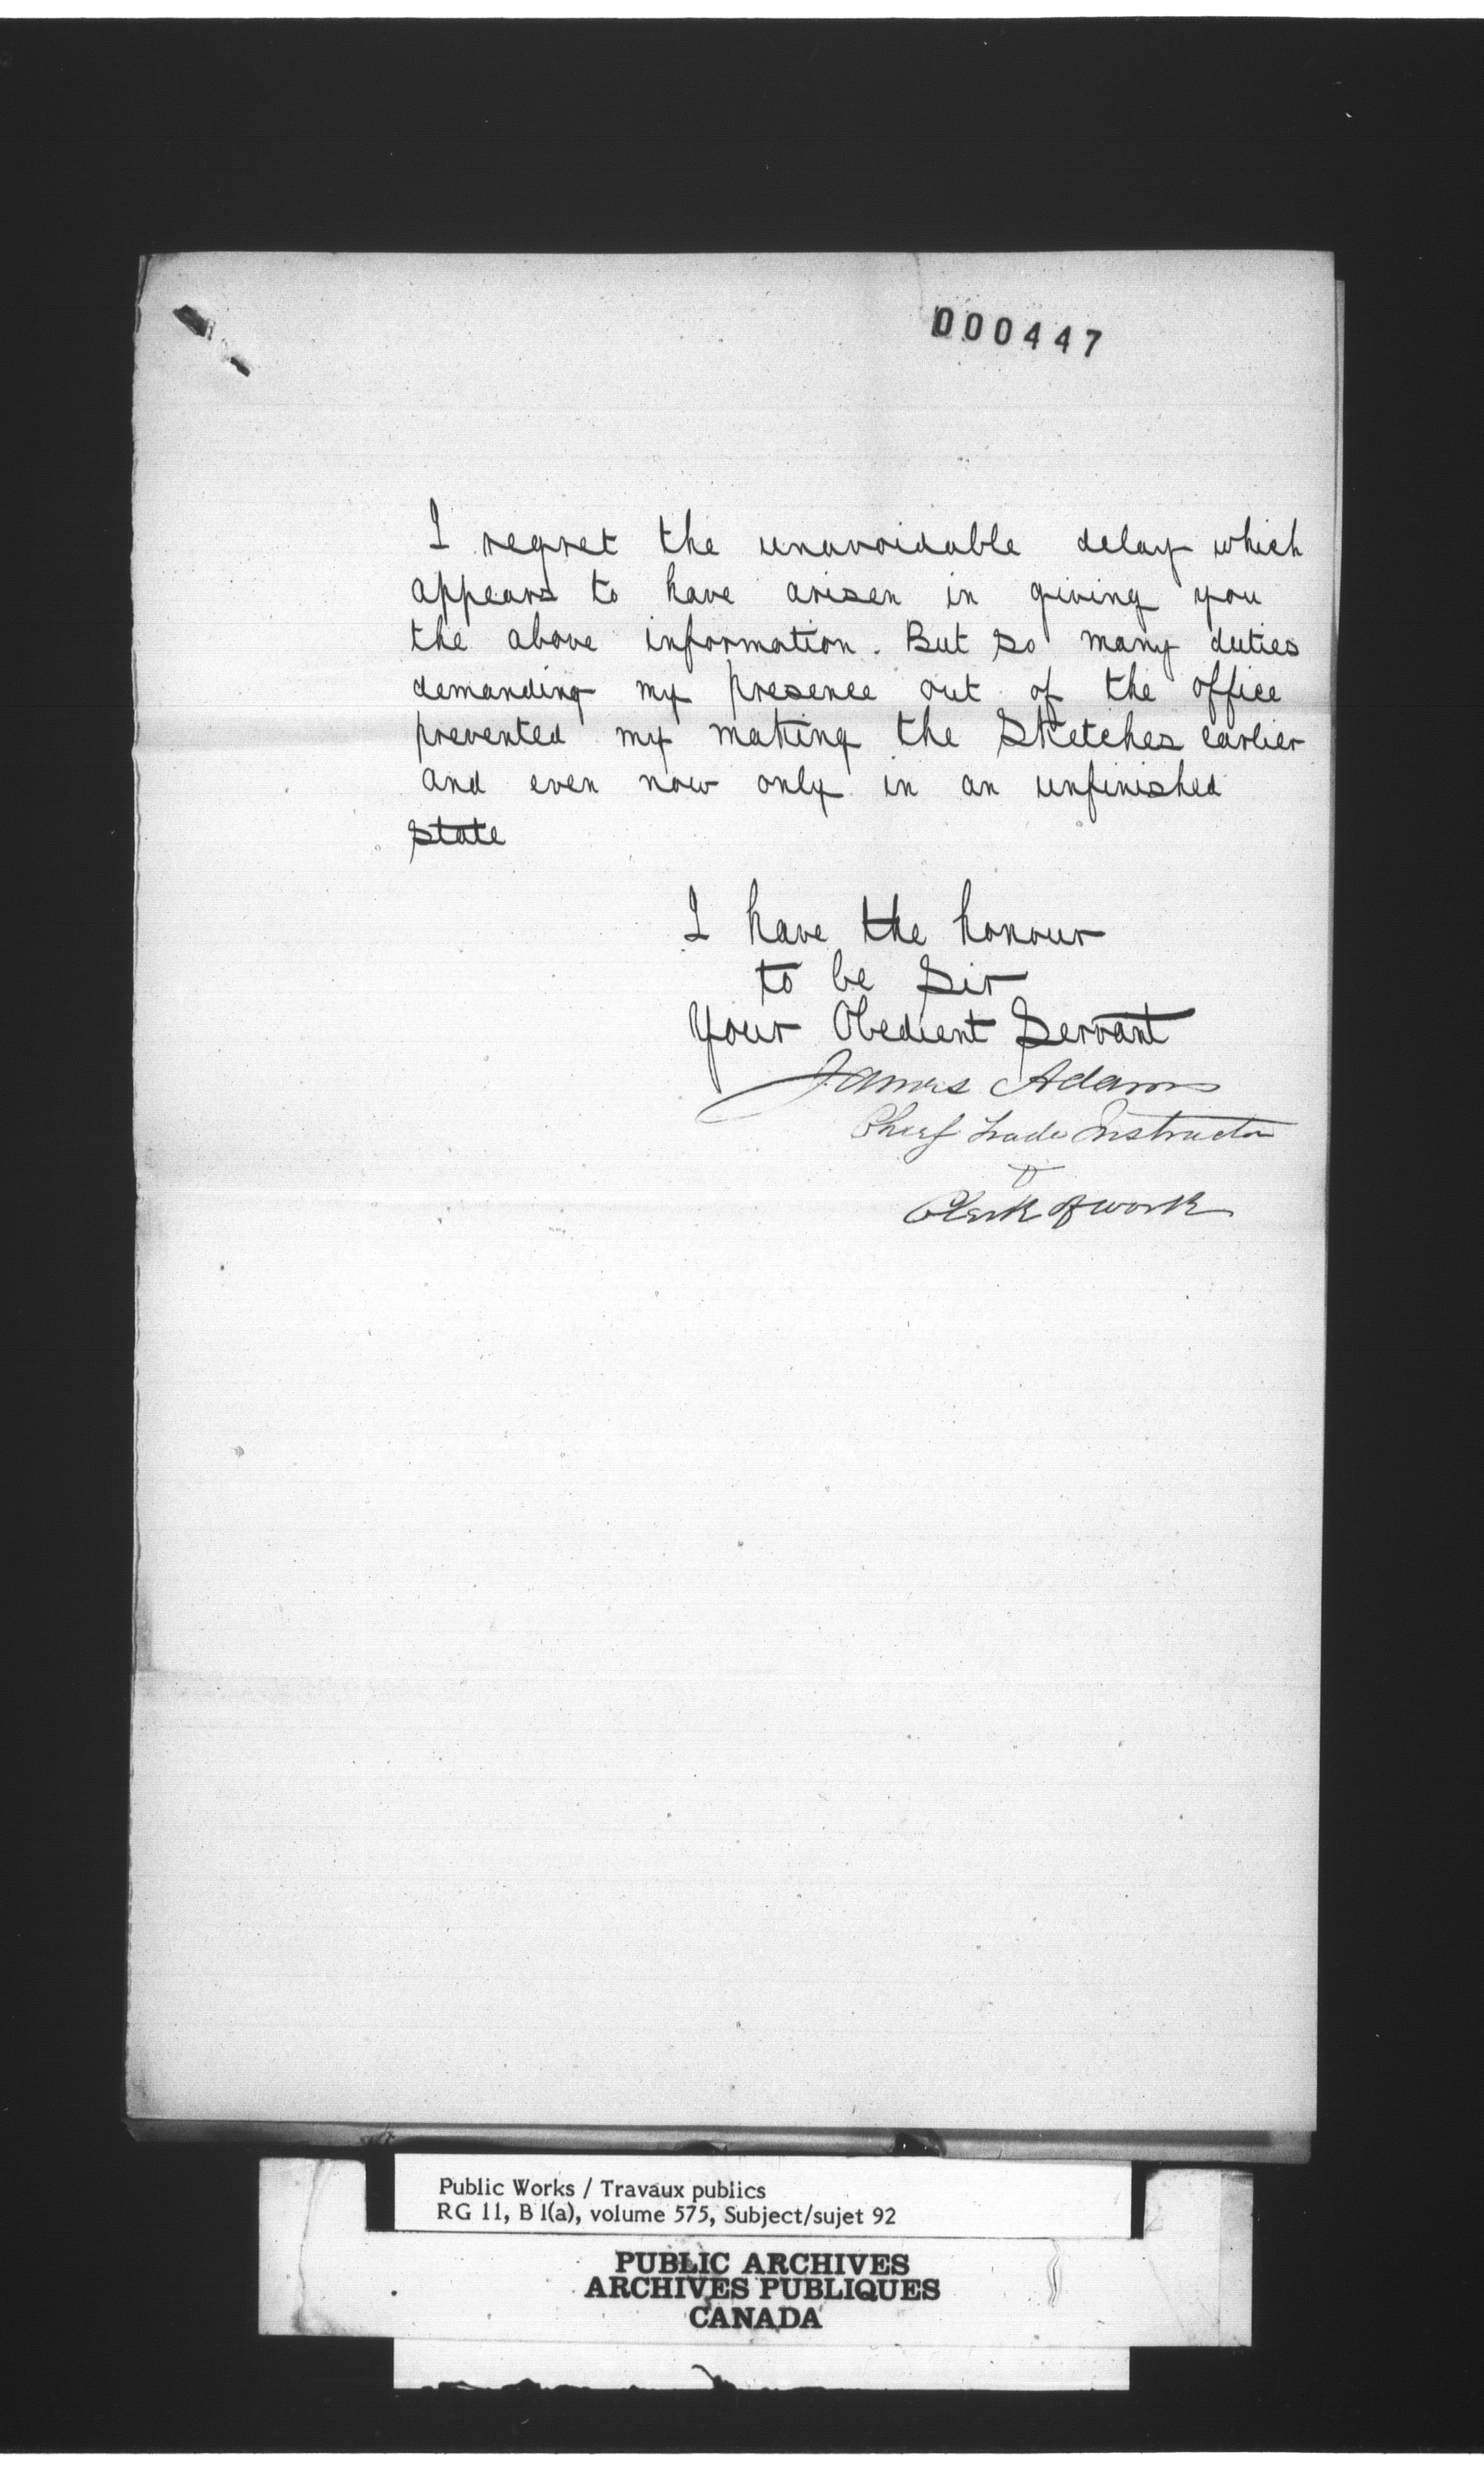 000447
I regret the unavoidable delay which
appears to have arisen in giving you
the above information. But so many duties
demanding my presence out of the office
prevented my making the Sketches earlier
and even now only in an unfinished
state
I have the honour
to be Sir
Your Obedient Servant
James Adams
Chief Trade Instructor
&
Clerk of work
Public Works / Travaux publics
RG 11, B 1(a), volume 575, Subject/sujet 92
PUBLIC ARCHIVES
ARCHIVES PUBLIQUES
CANADA